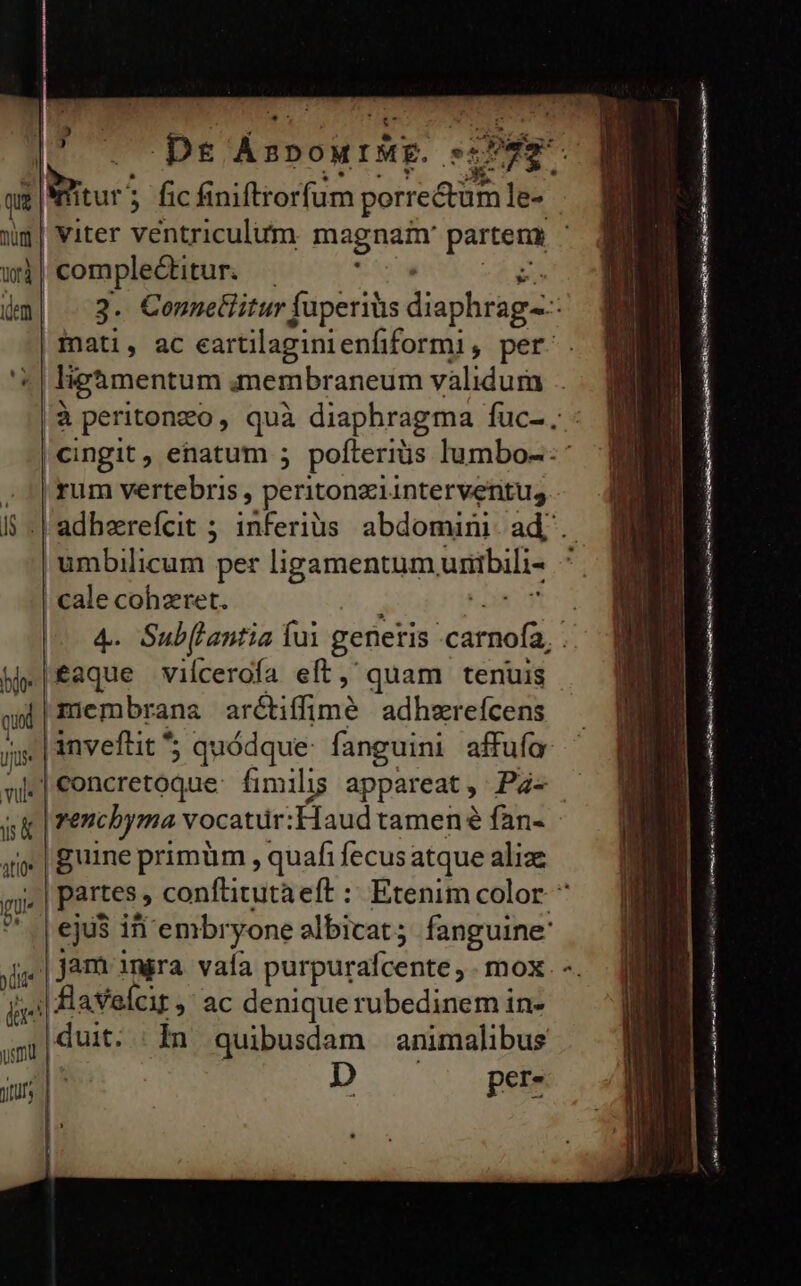 De Abdomine.
titur; sic sinistrorsum porrectum le-
viter ventriculum magnam partem
complectitur.
3. Connectitur superiùs diaphrag-
mati, ac cartilagini ensiformi, per
ligamentum membraneum validum
à peritonæo, quà diaphragma suc-
cingit, enatum; posteriùs lumbo-
rum vertebris, peritonæi interventu,
adhærescit; inferiùs abdomini ad
umbilicum per ligamentum umbili-
cale cohæret.
4. Substantia sui generis carnosa,
eaque viscerosa est, quam tenuis
membrana arctissimè adhærescens
investit*; quódque sanguini affuso
concretoque similis appareat, Pa-
renchyma vocatur: Haud tamen è san-
guine primùm, quasi secus atque aliæ
partes, constituta est: Etenim color
ejus in embryone albicat; sanguine
jam ingra vasa purpurascente, mox
flavescit, ac denique rubedinem in-
duit. In quibusdam animalibus
D per-